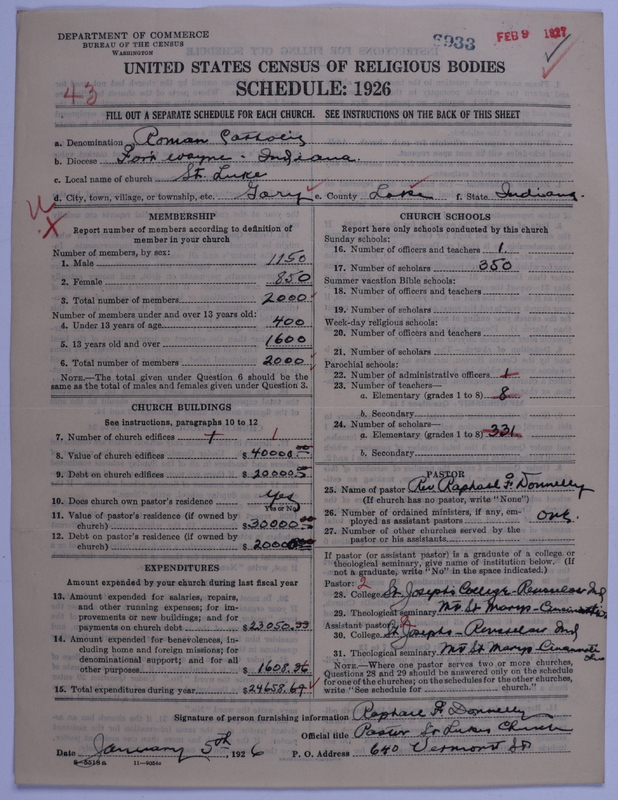 DEPARTMENT OF COMMERCE
BUREAU OF THE CENSUS
WASHINGTON
6933
FEB 9 1927
UNITED STATES CENSUS OF RELIGIOUS BODIES
SCHEDULE: 1926
43
FILL OUT A SEPARATE SCHEDULE FOR EACH CHURCH. SEE INSTRUCTIONS ON THE BACK OF THIS SHEET
a. Denomination Roman Catholic
b. Diocese Fort Wayne - Indiana.
c. Local name of church St. Luke
d. City, town, village, or township, etc. Gary e. County Lake f. State Indiana.
MEMBERSHIP
Report number of members according to definition of member in your church
Number of members, by sex:
1. Male 1150
2. Female 850
3. Total number of members 2000
Number of members under and over 13 years old:
4. Under 13 years of age 400
5. 13 years old and over 1600
6. Total number of members 2000
NOTE.—The total given under Question 6 should be
the same as the total of males and females given under Question 3.
CHURCH BUILDINGS
See instructions, paragraphs 10 to 12
7. Number of church edifices 1
8. Value of church edifices $ 40000.00
9. Debt on church edifices $ 20000
10. Does church own pastor's residence Yes
(Yes or No)
11. Value of pastor's residence (if owned by
church) $30000.00
12. Debt on pastor's residence (if owned by
church) $
EXPENDITURES
Amount expended by your church during last fiscal year
13. Amount expended for salaries, repairs,
and other running expenses; for im-
provements or new buildings; and for
payments on church debt $23050.
14. Amount expended for benevolences, in-
cluding home and foreign missions; for
denominational support; and for all
other purposes $ 1608.
15. Total expenditures during year $24658.69
CHURCH SCHOOLS
Report here only schools conducted by this church
Sunday schools:
16. Number of officers and teachers 1
17. Number of scholars 350
Summer vacation Bible schools:
18. Number of officers and teachers
19. Number of scholars
Week-day religious schools:
20. Number of officers and teachers
21. Number of scholars
Parochial schools:
22. Number of administrative officers 1
23. Number of teachers—
a. Elementary (grades 1 to 8) 8
b. Secondary
24. Number of scholars—
a. Elementary (grades 1 to 8) 331
b. Secondary
PASTOR
25. Name of pastor Rev. Raphael F. Donnelly
(If church has no pastor, write "None")
26. Number of ordained ministers, if any, em-
ployed as assistant pastors One.
27. Number of other churches served by the
pastor or his assistants
If pastor (or assistant pastor) is a graduate of a college or
theological seminary, give name of institution below. (If
not a graduate, write "No" in the space indicated.)
Pastor: 2
28. College St. Josephs College - Rensselaer Ind
29. Theological seminary Mt St. Marys - Cincinnati
Assistant pastor: 2
30. College St. Josephs - Rensselaer Ind
31. Theological seminary Mt St Marys - Cincinnati
NOTE.—Where one pastor serves two or more churches,
Questions 28 and 29 should be answered only on the schedule
for one of the churches; on the schedules for the other churches,
write "See schedule for church."
Signature of person furnishing information Raphael F. Donnelly
Official title Pastor St Lukes Church
Date January 5th, 1926 P. O. Address 640 Vermont St
8-5518a 11-9056